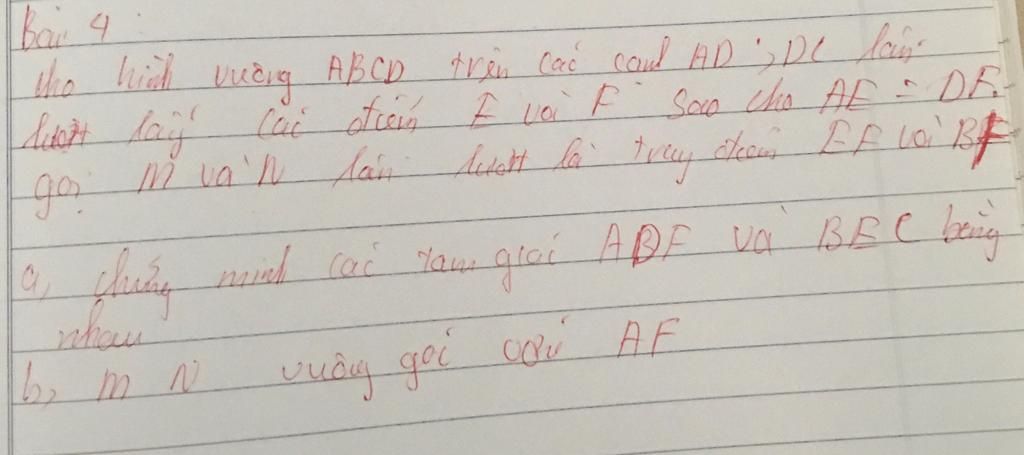 Bài 4
cho hình vuông ABCD trên các cạnh AD ; DC lần
lượt lấy các điểm E và F sao cho AE = DF.
gọi M và N lần lượt là trung điểm EF và BF
a, chứng minh các tam giác ADF và BEC bằng
nhau
b, M N vuông góc với AF